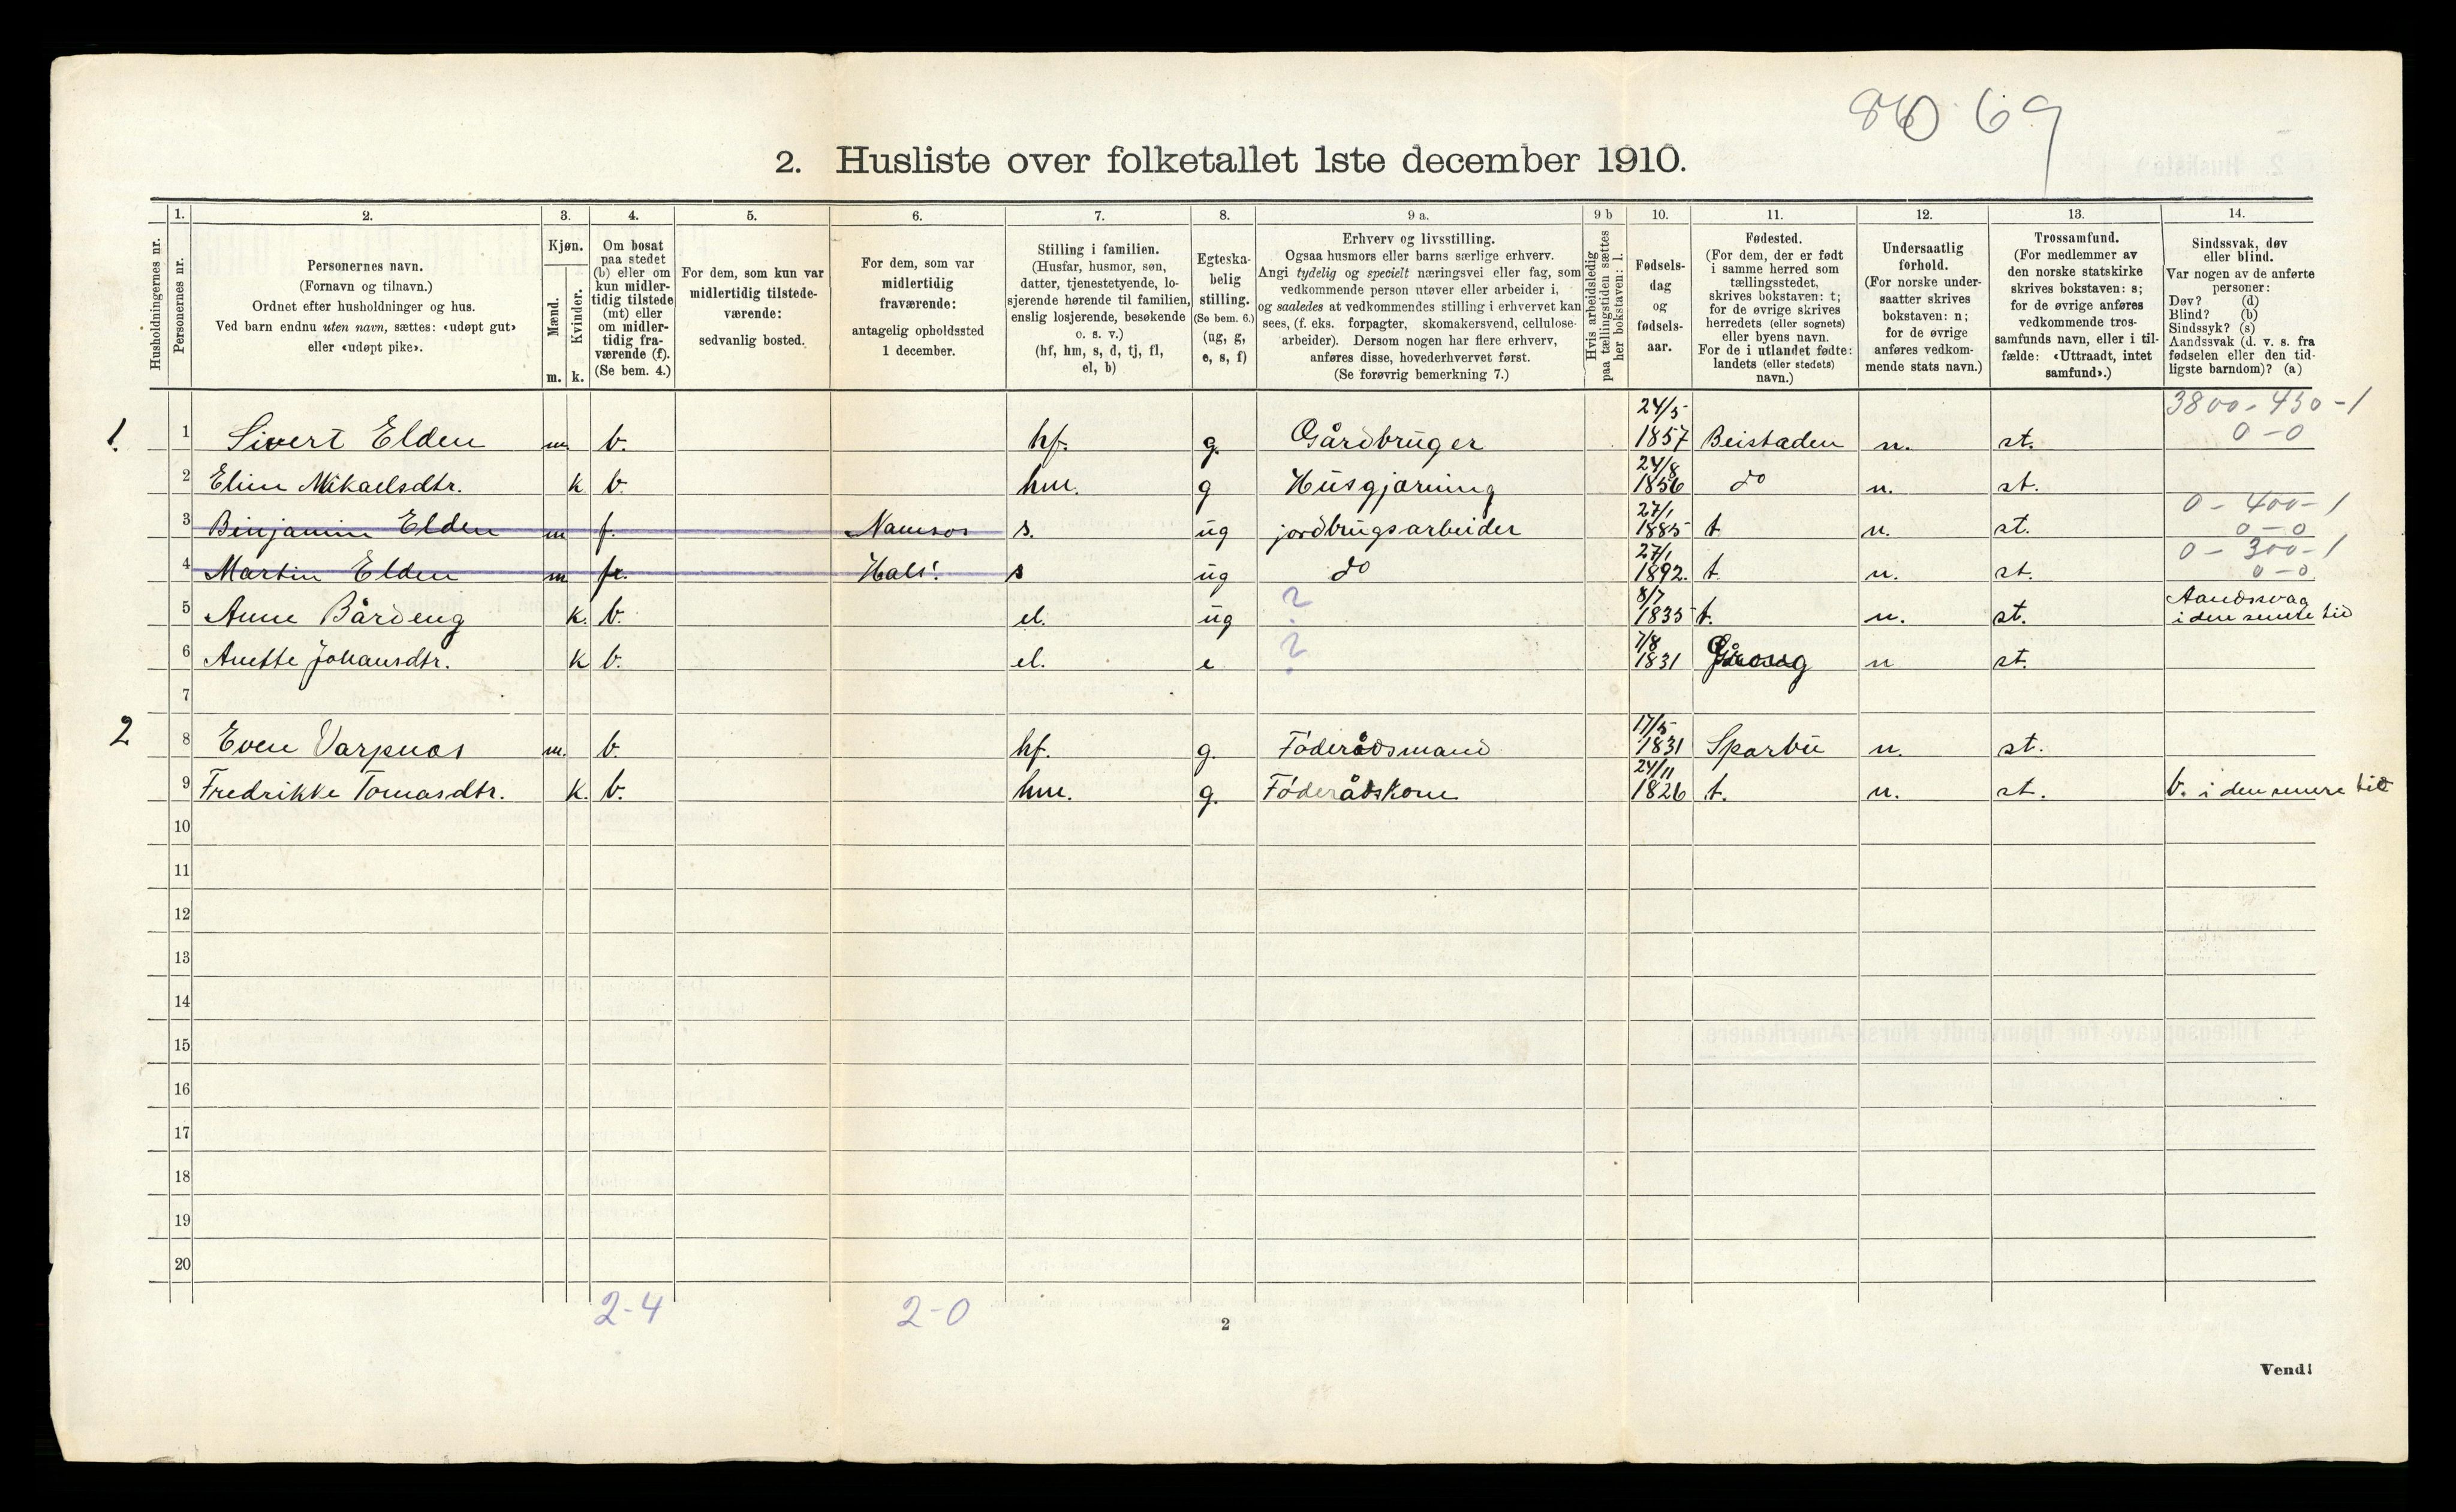 80 69
2. Husliste over folketallet 1ste december 1910.
Husholdningernes nr.
1. Personernes nr.
2. Personernes navn.
(Fornavn og tilnavn.)
Ordnet efter husholdninger og hus.
Ved barn endnu uten navn, sættes: «udøpt gut»
eller «udøpt pike».
3. Kjøn.
Mænd. m.
Kvinder. k.
4. Om bosat
paa stedet
(b) eller om
kun midler-
tidig tilstede
(mt) eller
om midler-
tidig fra-
værende (f).
(Se bem. 4.)
5. For dem, som kun var
midlertidig tilstede-
værende:
sedvanlig bosted.
6. For dem, som var
midlertidig
fraværende:
antagelig opholdssted
1 december.
7. Stilling i familien.
(Husfar, husmor, søn,
datter, tjenestetyende, lo-
sjerende hørende til familien,
enslig losjerende, besøkende
o. s. v.)
(hf, hm, s, d, tj, fl,
el, b)
8. Egteska-
belig
stilling.
(Se bem. 6.)
(ug, g,
e, s, f)
9 a. Erhverv og livsstilling.
Ogsaa husmors eller barns særlige erhverv.
Angi tydelig og specielt næringsvei eller fag, som
vedkommende person utøver eller arbeider i,
og saaledes at vedkommendes stilling i erhvervet kan
sees, (f. eks. forpagter, skomakersvend, cellulose-
arbeider). Dersom nogen har flere erhverv,
anføres disse, hovederhvervet først.
(Se forøvrig bemerkning 7.)
9 b Hvis arbeidsledig
paa tællingstiden sættes
her bokstaven: l.
10. Fødsels-
dag
og
fødsels-
aar.
11. Fødested.
(For dem, der er født
i samme herred som
tællingsstedet,
skrives bokstaven: t;
for de øvrige skrives
herredets (eller sognets)
eller byens navn.
For de i utlandet fødte:
landets (eller stedets)
navn.)
12. Undersaatlig
forhold.
(For norske under-
saatter skrives
bokstaven: n;
for de øvrige
anføres vedkom-
mende stats navn.)
13. Trossamfund.
(For medlemmer av
den norske statskirke
skrives bokstaven: s;
for de øvrige anføres
vedkommende tros-
samfunds navn, eller i til-
fælde: «Uttraadt, intet
samfund».)
14. Sindssvak, døv
eller blind.
Var nogen av de anførte
personer:
Døv? (d)
Blind? (b)
Sindssyk? (s)
Aandssvak (d. v. s. fra
fødselen eller den tid-
ligste barndom)? (a)
1. 1 Sivert Elden m. b. hf. g. Gårdbruger 24/5 1857 Beistaden n. st. 3800-450-1 0-0
2 Eline Mikaelsdtr. k b. hm. g Husgjørning 24/8 1856 do n. st.
3 Binjamin Elden m f. Namsos s. ug jordbrugsarbeider 27/1 1885 t. n. st. 0-400-1 0-0
4 Martin Elden m fr. Hals! s ug do 27/1 1892. t. n. st. 0-300-1 0-0
5 Anne Bårdeng k. b. el. ug ? 8/7 1835 t. n. st. Aandsvag i den senere tid
6 Anette Johansdtr. k b. el. e ? 7/8 1831 Grong n st.
7
2 8 Even Varpnes m. b. hf. g. Føderådsmand 17/5 1831 Sparbu n. st.
9 Fredrikke Tomasdtr. k. b. hm. g. Føderådskone 24/11 1826 t. n. st. b. i den senere tid
10
11
12
13
14
15
16
17
18
19
20
2-4 2-0
2
Vend!